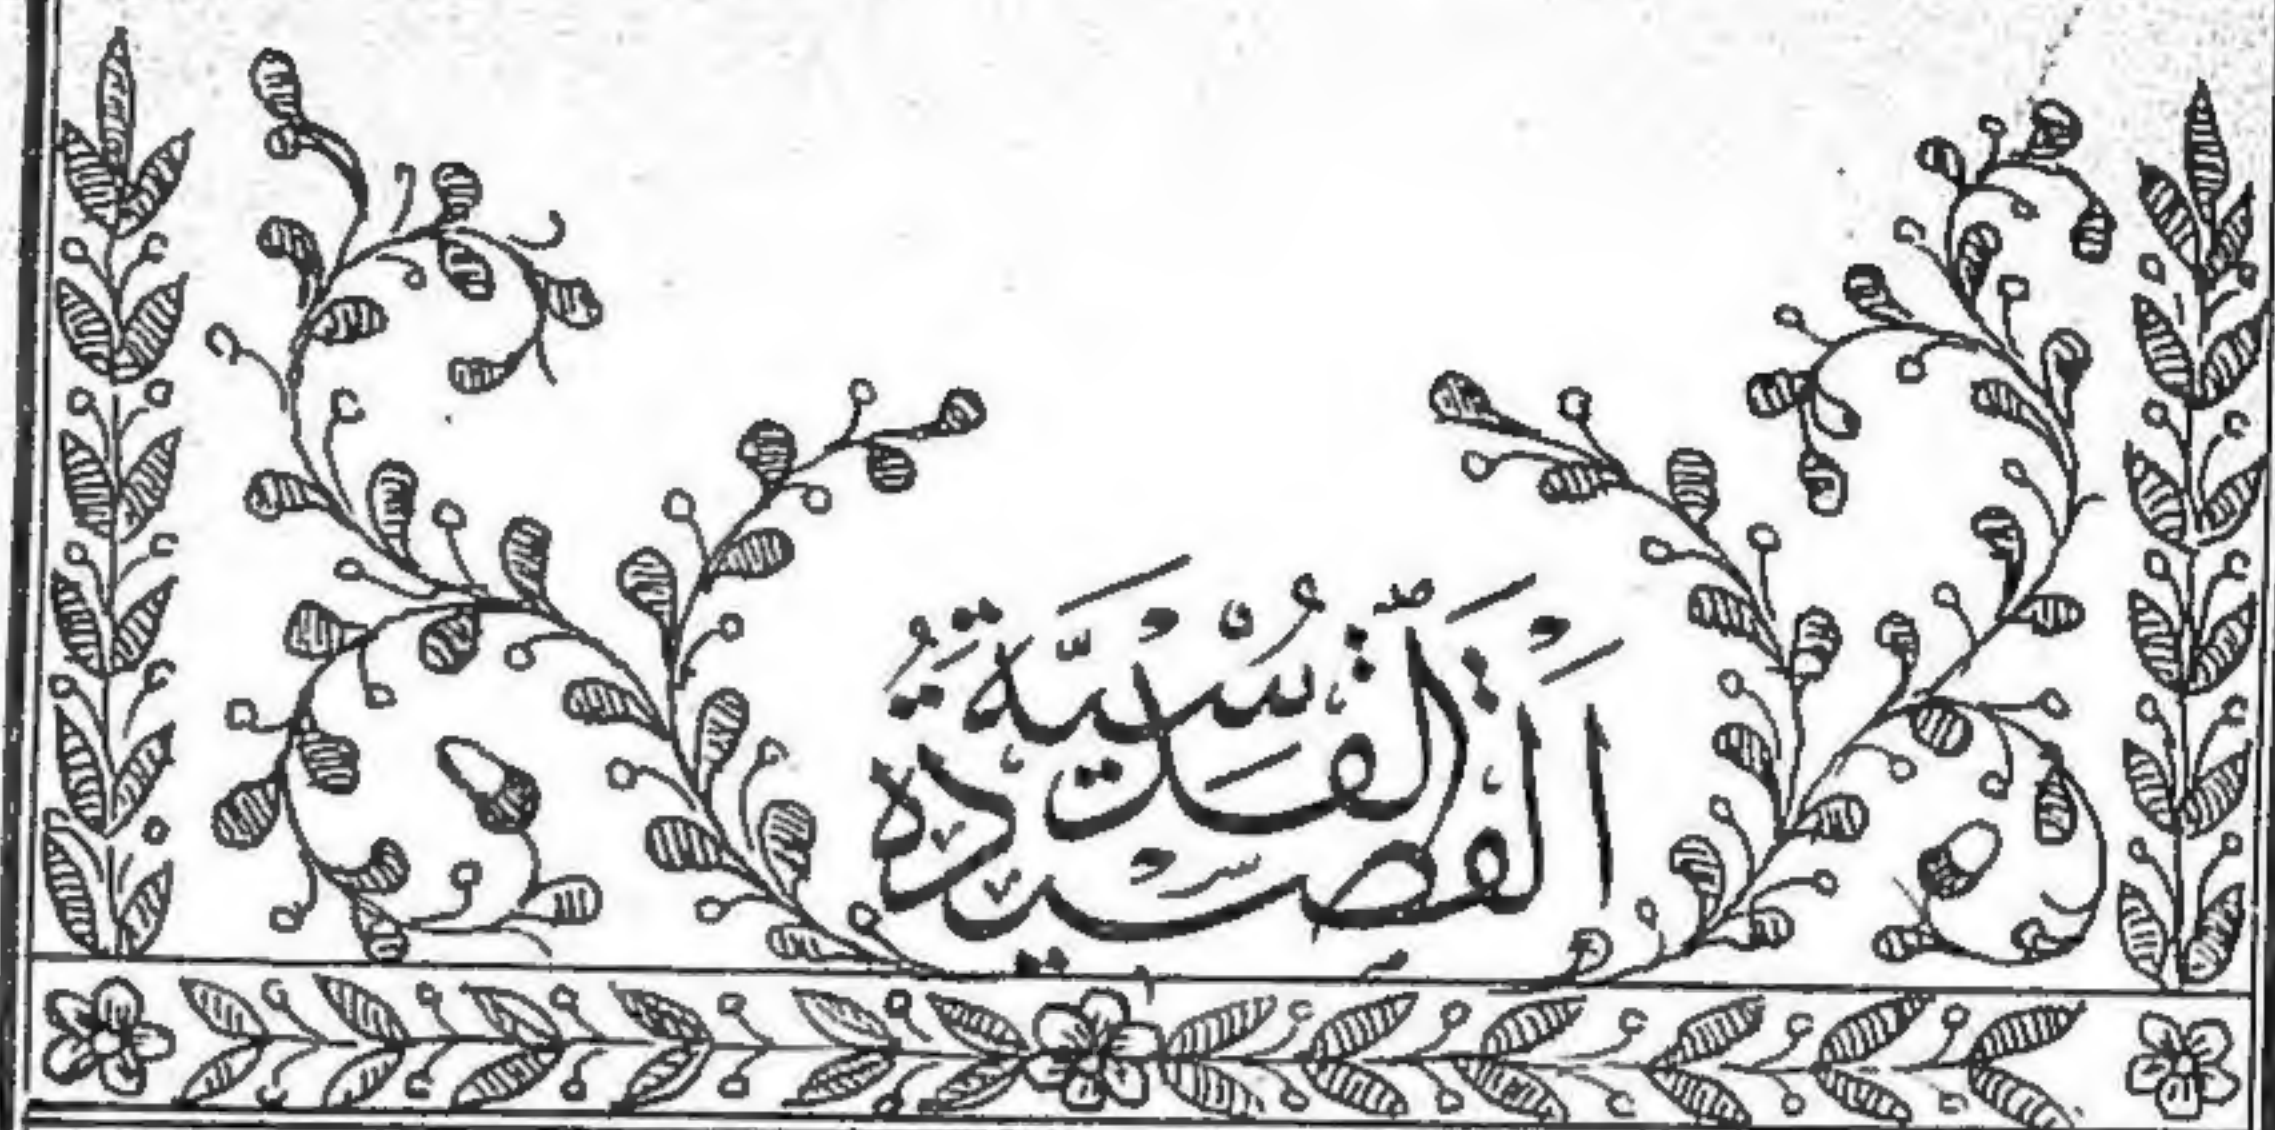 القصيدة
القدسية